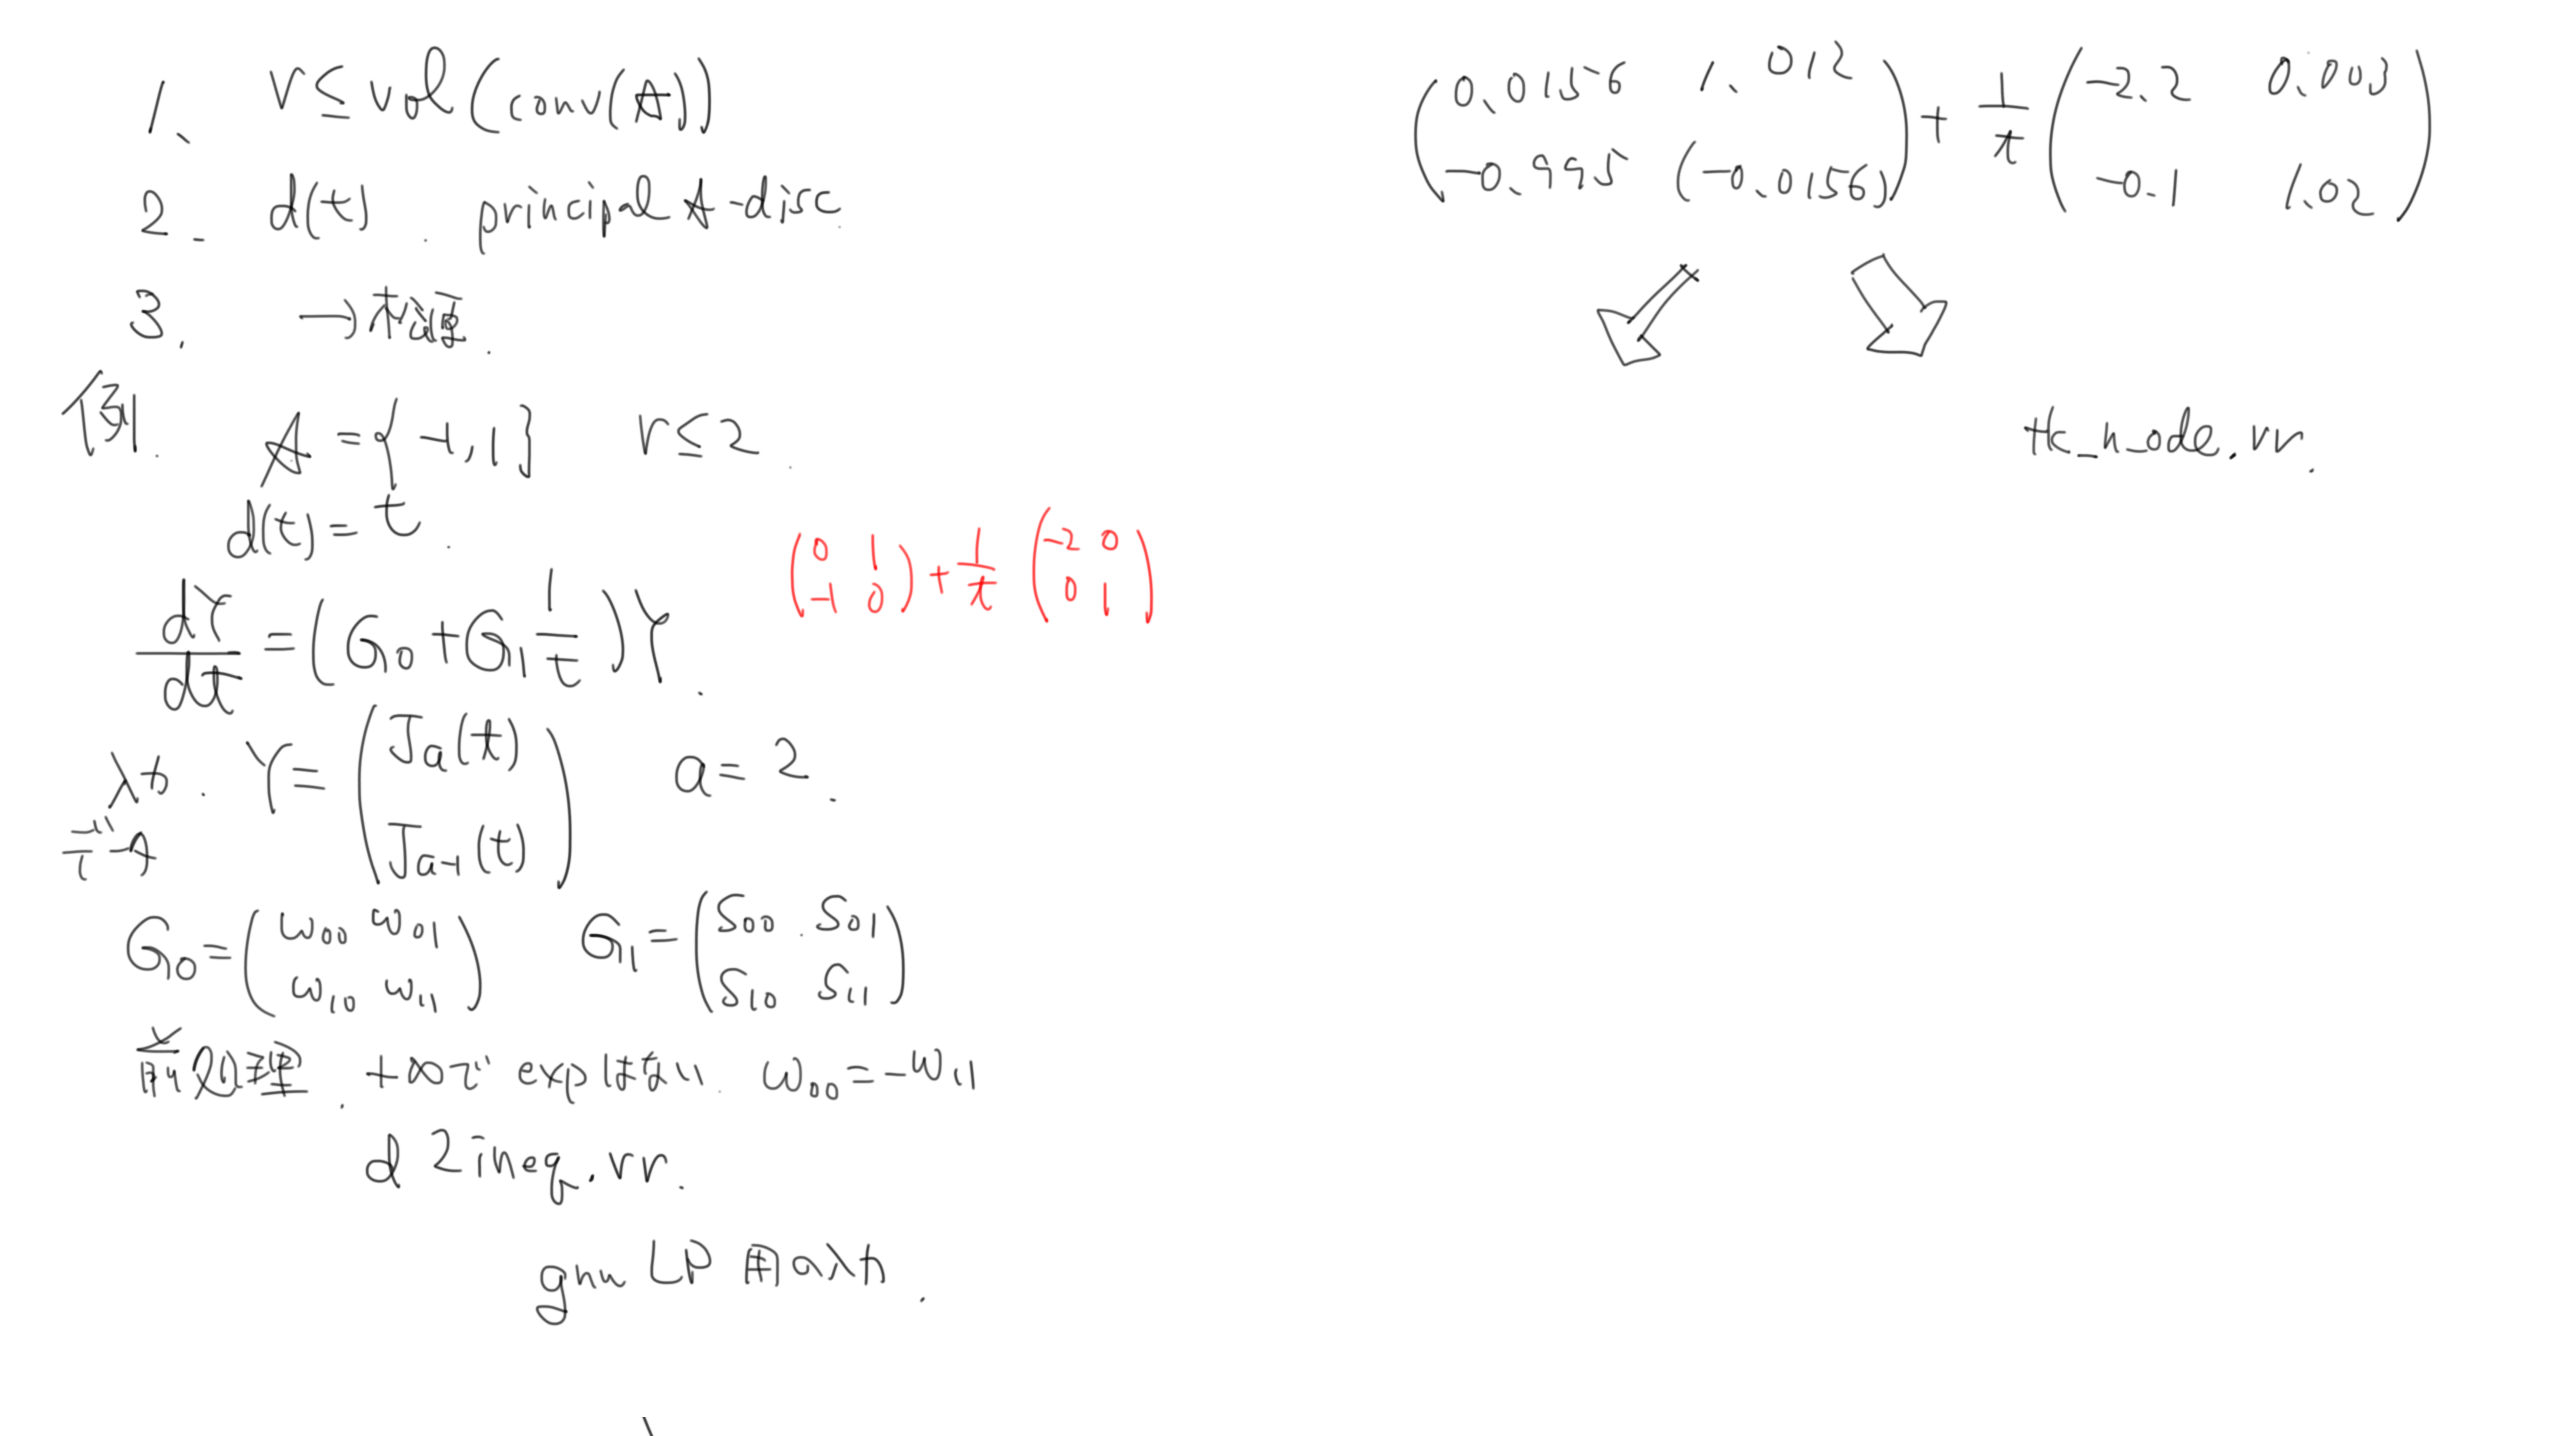 1、 r≤vol(conv(A))
2. d(t). principal A-disc
3. →
例. A={-1,1} r≤2.
d(t)=t.
dY/dt=(G₀+G₁ 1/t)Y.
(0 1; -1 0)+1/t(-2 0; 0 1)
入力. Y=(Jₐ(t); Jₐ₋₁(t)) a=2.
データ
G₀=(ω₀₀ ω₀₁; ω₁₀ ω₁₁) G₁=(S₀₀ S₀₁; S₁₀ S₁₁)
前処理. +∞で expはない. ω₀₀=-ω₁₁
d2ineq.rr.
gnu LP用の入力.
(0.0156 1.012; -0.995 (-0.0156))+1/t(-2.2 0.003; -0.1 1.02)
tk_n_ode.rr.